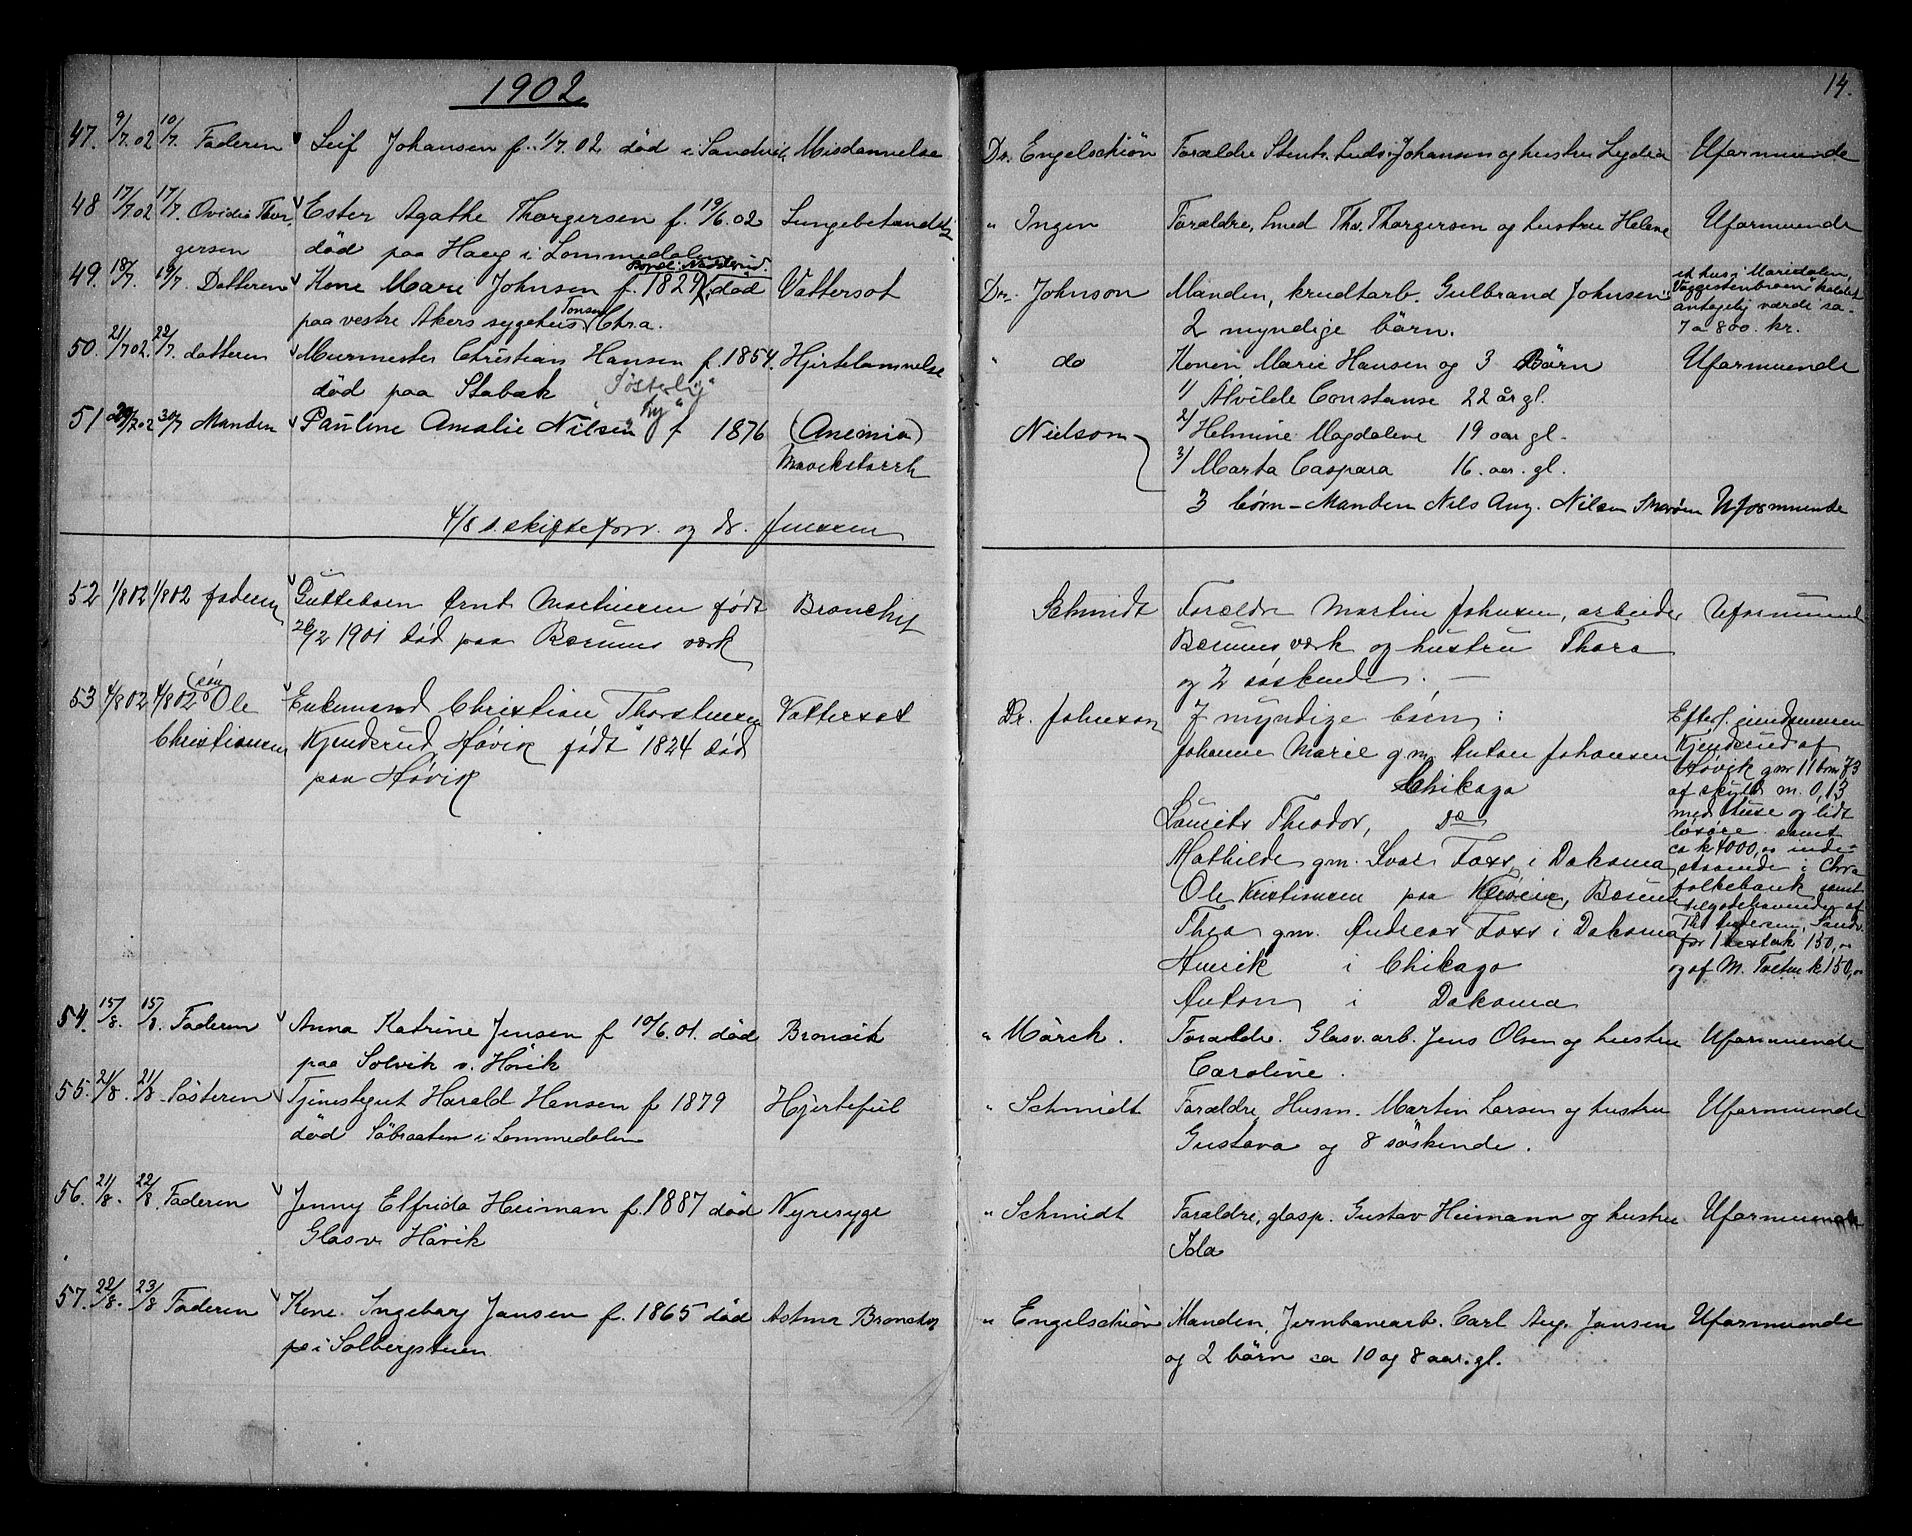 1902
14.
47. 9/7.02 10/7. Faderen Leif Johansen f. 1/7.02 død i Sandvik, Misdannelse Dr. Engelschiøn Forældre Stent. Ludv. Johansen og hustru Lydia Uformuende
48 17/7.02 17/7. Ovidia Thor- Ester Agathe Thorgersen f. 19/6.02 Lungebetændelse " Ingen Forældre, Smed Thv. Thorgersen og hustru Helene Uformuende
gersen død paa Haug i Lommedalen
49. 18/7. 19/7. Datteren Kone Mari Johnsen f. 1829, død Vattersot Dr. Johnson Manden, krudtarb. Gulbrand Johnsen et hus i Maridalen,
paa vestre Akers sygehus Chra. 2 myndige børn. "Vaggestenbraaten" kaldet antagelig værdi ca. 7 a 800. kr.
50. 21/7 02. 22/7. datteren Murmester Christian Hansen f. 1854. Hjertelammelse " do Konen Marie Hansen og 3 Børn Uformuende
død paa Stabæk 1/ Alvilde Constanse 22 år gl.
51 29/7 02 30/7 Manden Pauline Amalie Nilsen f 1876 (Anemia) Nielson 2/ Helmine Magdalene 19 aar gl.
Mavekatarrh 3/ Marta Caspara 16. aar. gl.
3 børn – Manden Nils Aug. Nilsen Uformuende
4/8 s. skifteforv. og dr. Jenssen
52 1/8 02 1/8 02 faderen Gutteben Arnt Martinsen født Bronchit Schmidt Forældre Martin Johnsen, arbeider Uformuend
26/2 1901 død paa Bærums værk Bærums værk og hustru Thora
og 2 søskende. –
53 4/8 02 4/8 02 søn Ole Enkemand Christian Thorstensen Vattersot Dr. Johnson 7 myndige børn: Efterl. eiendommen
Christiansen Kjendsrud, Høvik født 1824 død Johanne Marie g.m. Anton Johansen Kjendsrud af
paa Høvik Chikago Høvik gnr 11 bnr 73
af skyld m. 0,13
Laurits Theodor, do med huse og lidt
løsøre samt
Mathilde gm. Ivar Foss i Dakoma ca k 4000,00 inde-
staaende i Chra
Ole Kristiansen paa Høvik, Bærum folkebank samt
tilgodehavende af
Thea gm. Andreas Foss i Dakoma Th. Pedersen, Sandv.
for 1 hest k 150,00
Henrik i Chikago og af M. Tveten k 150,00
Anton i Dakoma
54. 15/8. 15/8. Faderen Anna Katrine Jensen f 10/6.01. død Bronsit " Mörch. Forældre. Glasv.arb. Jens Olsen og hustru Uformuende
paa Solvik v. Hövik Caroline.
55. 21/8. 21/8. Søsteren Tjenestegut Harald Hansen f 1879 Hjertefeil " Schmidt Forældre, Husm. Martin Larsen og hustru Uformuende
død Säbraaten i Lommedalen Gustava og 8 søskende.
56. 21/8. 22/8. Faderen Jenny Elfrida Heiman f. 1887 död Nyresyge " Schmidt Forældre, glasp. Gustav Heimann og hustru Uformuende
Glasv. Hövik Ida
57. 22/8. 23/8 Faderen Kone. Ingeborg Jansen f. 1865 død Astma Bronchit " Engelschiøn Manden, Jernbanearb. Carl Aug. Jansen Uformuende
på i Solbergstuen og 2 børn ca 10 og 8 aar. gl.